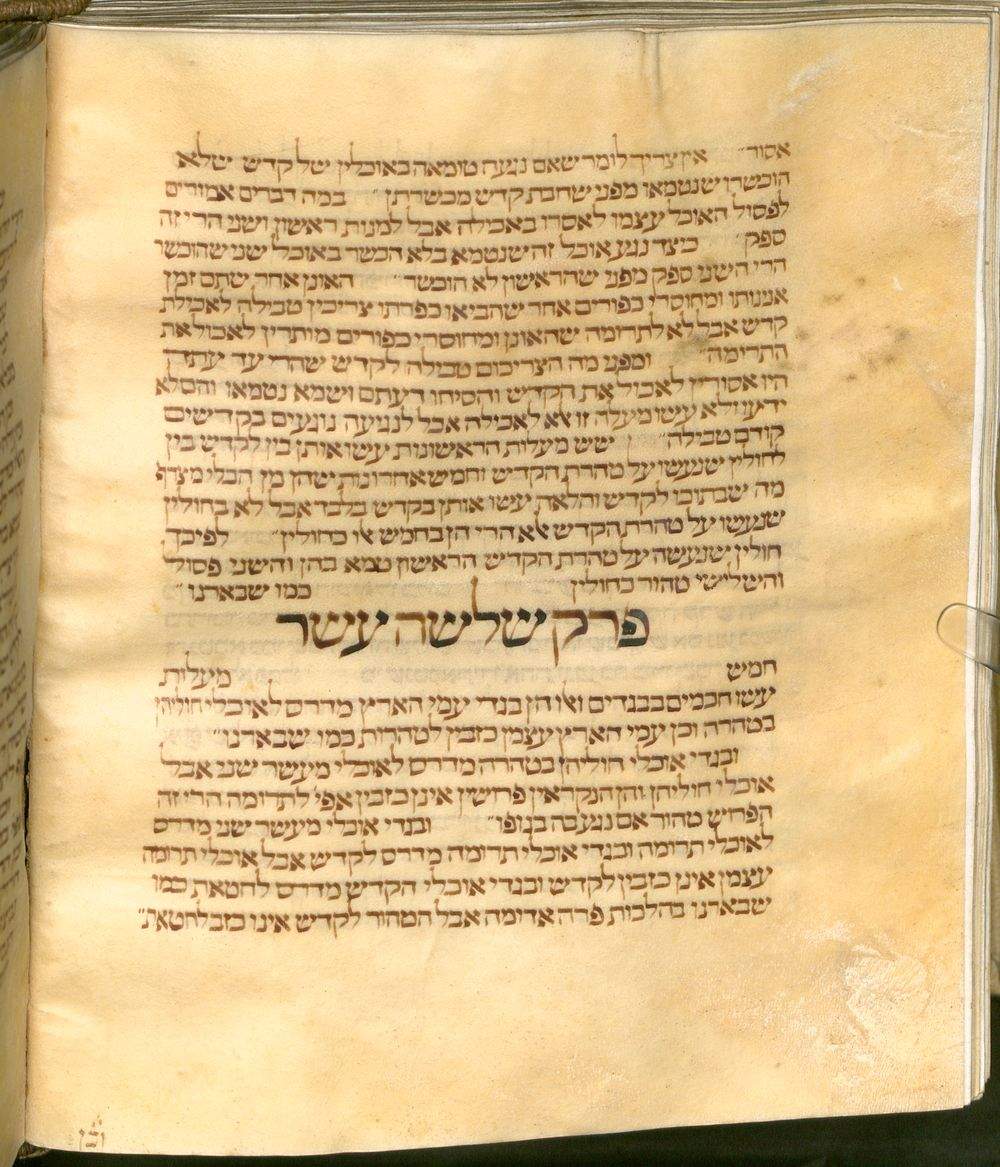 אסור״ אין צריך לומר שאם נגעה טומאה באוכלין של קדש שלא
הוכשרו שנטמאו מפני שחבת קדש מכשרתן ״ במה דברים אמורים
לפסול האוכל עצמו לאסרו באכילה אבל למנות ראשון ושני הרי זה
ספק״ כיצד נגע אוכל זה שנטמא בלא הכשר באוכל שני שהוכשר
הרי השני ספק מפני שהראשון לא הוכשר״ האונן אחר שתם זמן
אנינותו ומחוסרי כפורים אחר שהביאו כפרתו צריכין טבילה לאכילת
קדש אבל לא לתרומה שהאונן ומחוסרי כפורים מותרין לאכול את
התרומה״ ומפני מה הצריכום טבילה לקדש שהרי עד עתה
היו אסורין לאכול את הקדש והסיחו דעתם ושמא נטמאו והם לא
ידעו ולא עשו מעלה זו אלא לאכילה אבל לנגיעה נוגעים בקדשים
קודם טבילה״ שש מעלות הראשונות עשו אותן בין לקדש בין
לחולין שנעשו על טהרת הקדש וחמש אחרונות שהן מן הכלי מצרף
מה שבתוכו לקדש והלאה עשו אותן בקדש בלבד אבל לא בחולין
שנעשו על טהרת הקדש אלא הרי הן בחמש אלו כחולין״ לפיכך
חולין שנעשה על טהרת הקדש הראשון טמא בהן והשני פסול
והשלישי טהור כחולין כמו שבארנו ״
פרק שלשה עשר
חמש מעלות
עשו חכמים בבגדים ואלו הן בגדי עמי הארץ מדרס לאוכלי חוליהן
בטהרה וכן עמי הארץ עצמן כזבין לטהרות כמו שבארנו״
ובגדי אוכלי חוליהן בטהרה מדרס לאוכלי מעשר שני אבל
אוכלי חוליהן והן הנקראין פרושין אינן כזבין אפי׳ לתרומה הרי זה
הפרוש טהור אם נגע בה בגופו״ ובגדי אוכלי מעשר שני מדרס
לאוכלי תרומה ובגדי אוכלי תרומה מדרס לקדש אבל אוכלי תרומה
עצמן אינן כזבין לקדש ובגדי אוכלי הקדש מדרס לחטאת כמו
שבארנו בהלכות פרה אדומה אבל הטהור לקדש אינו כזב לחטאת״
וכן